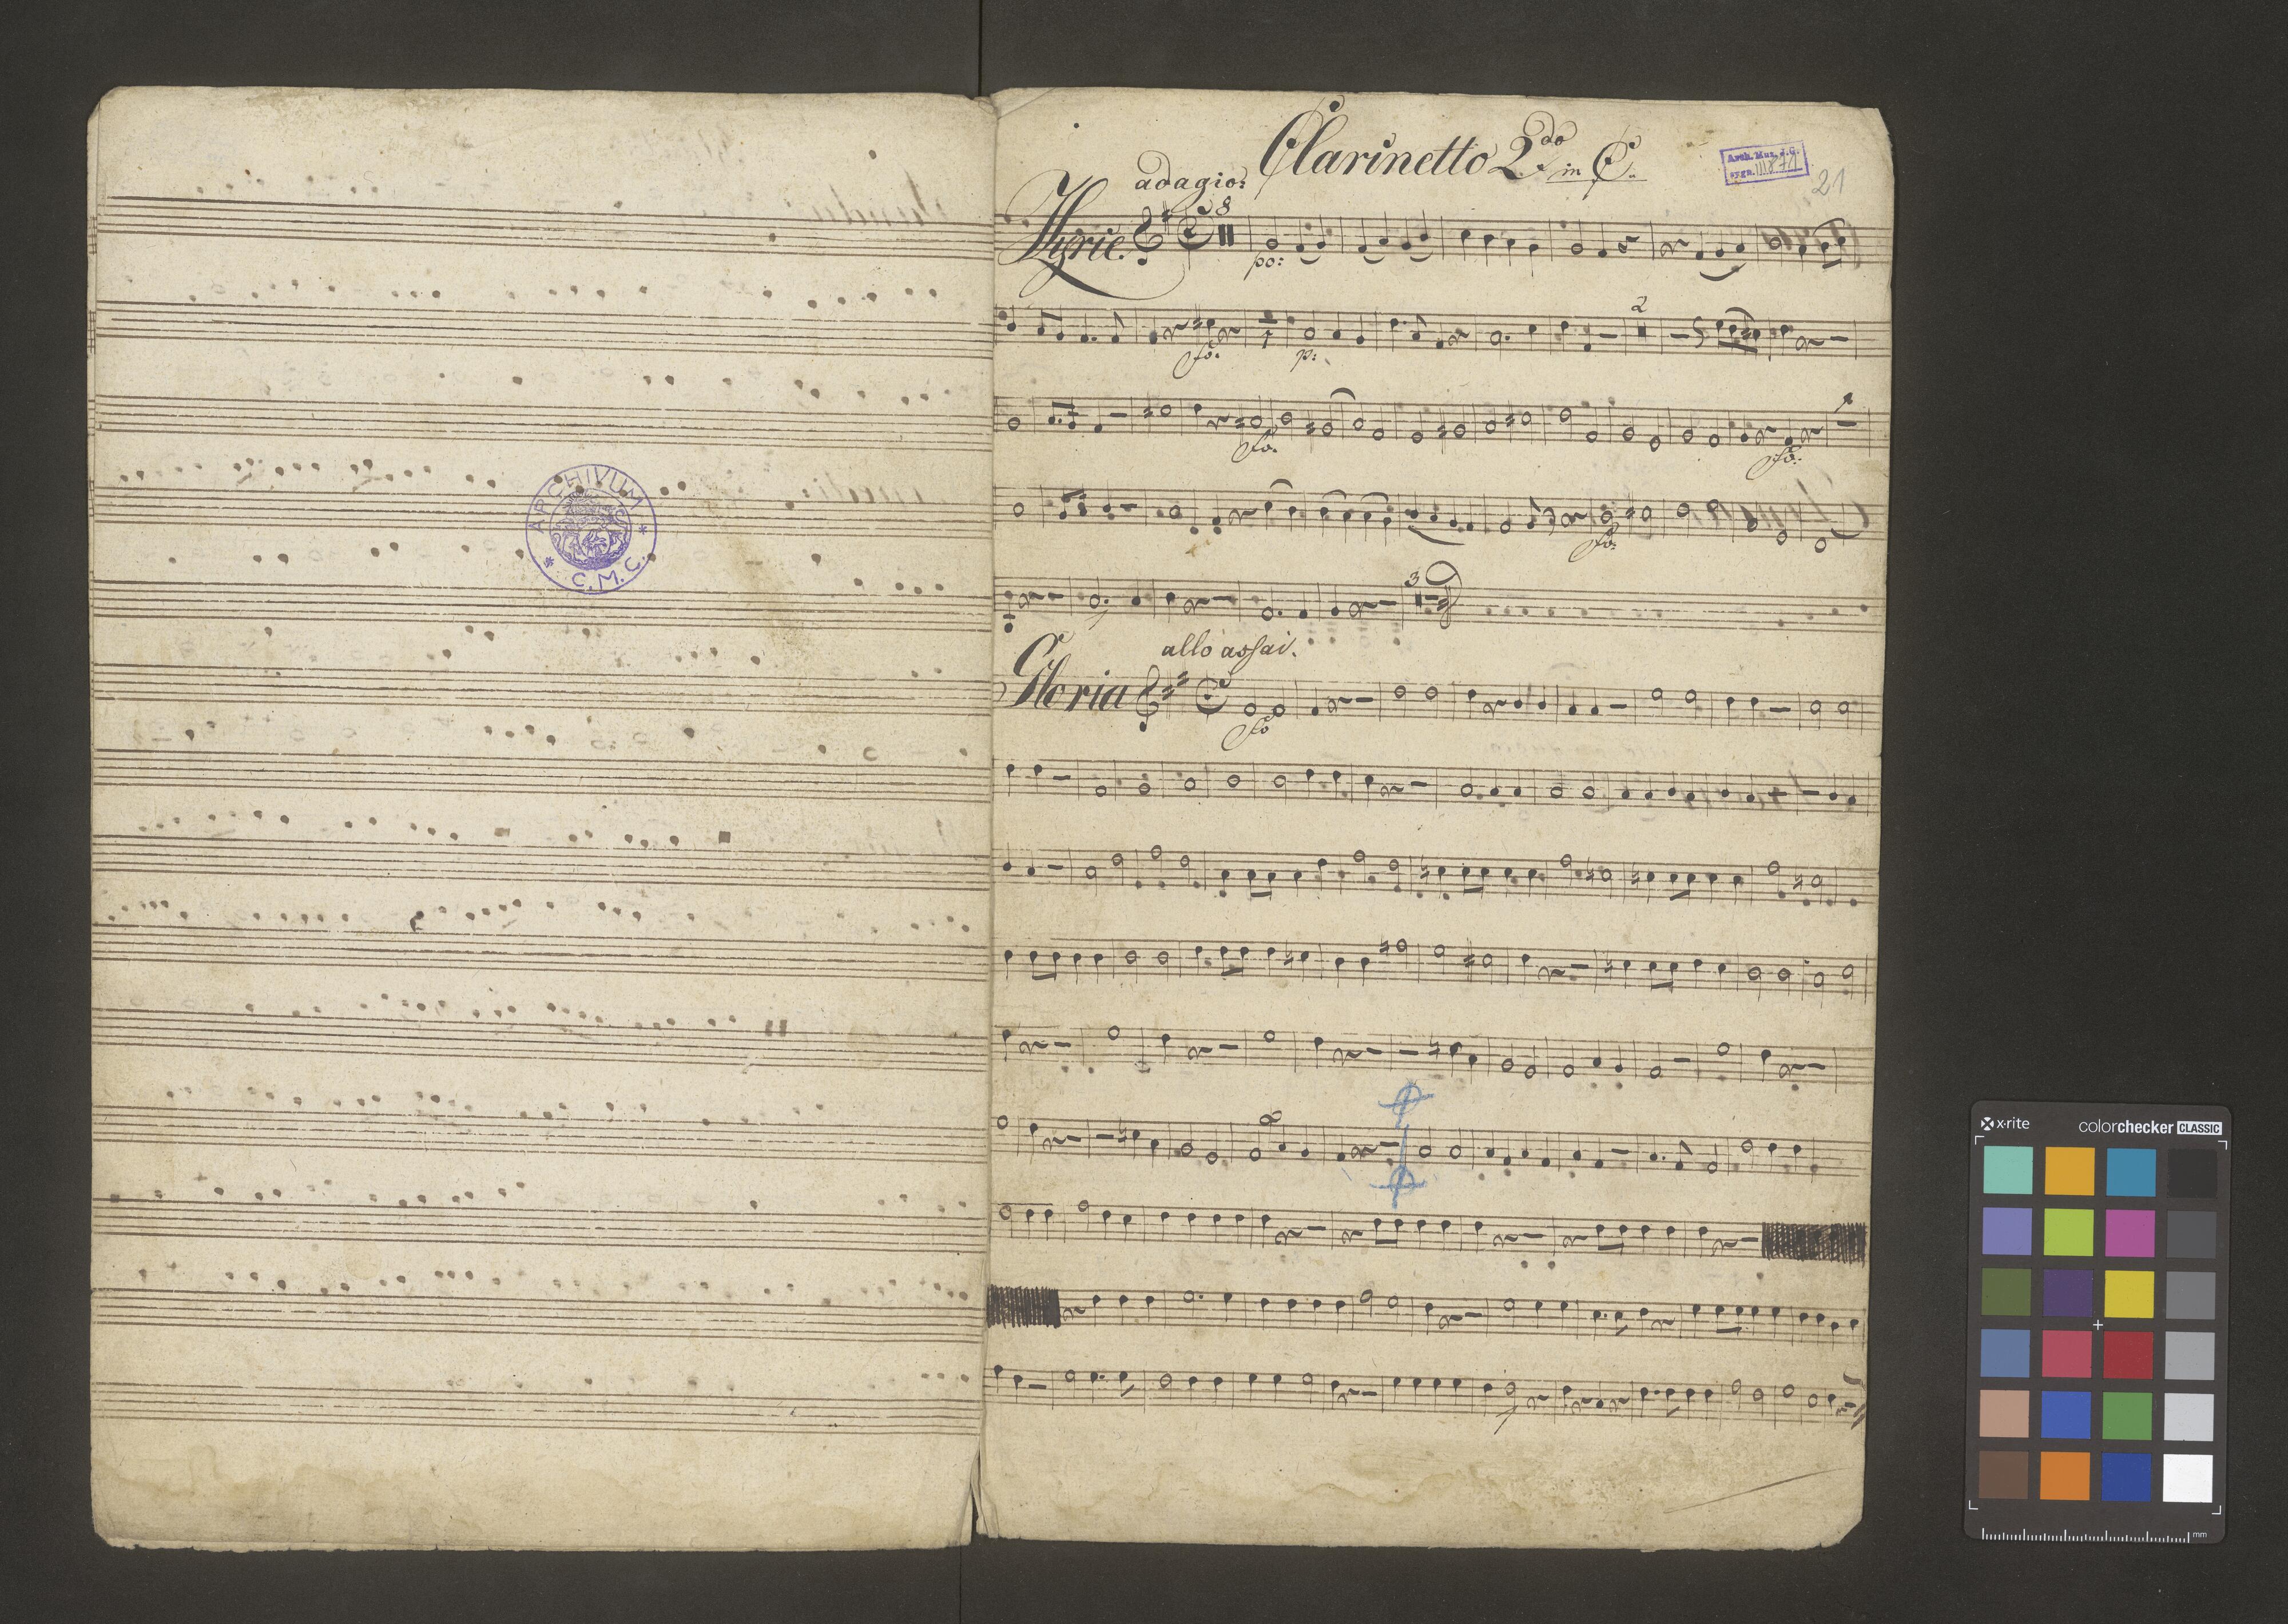 ARCHIVUM
* C.M.C. *
Clarinetto 2do in C.
Arch. Muz. J.G.
sygn. III
21
adagio:
Kyrie.
8
po:
fo:
1
p:
2
fo:
fo:
fo:
3
allo assai.
Gloria
fo
x·rite
colorchecker CLASSIC
mm